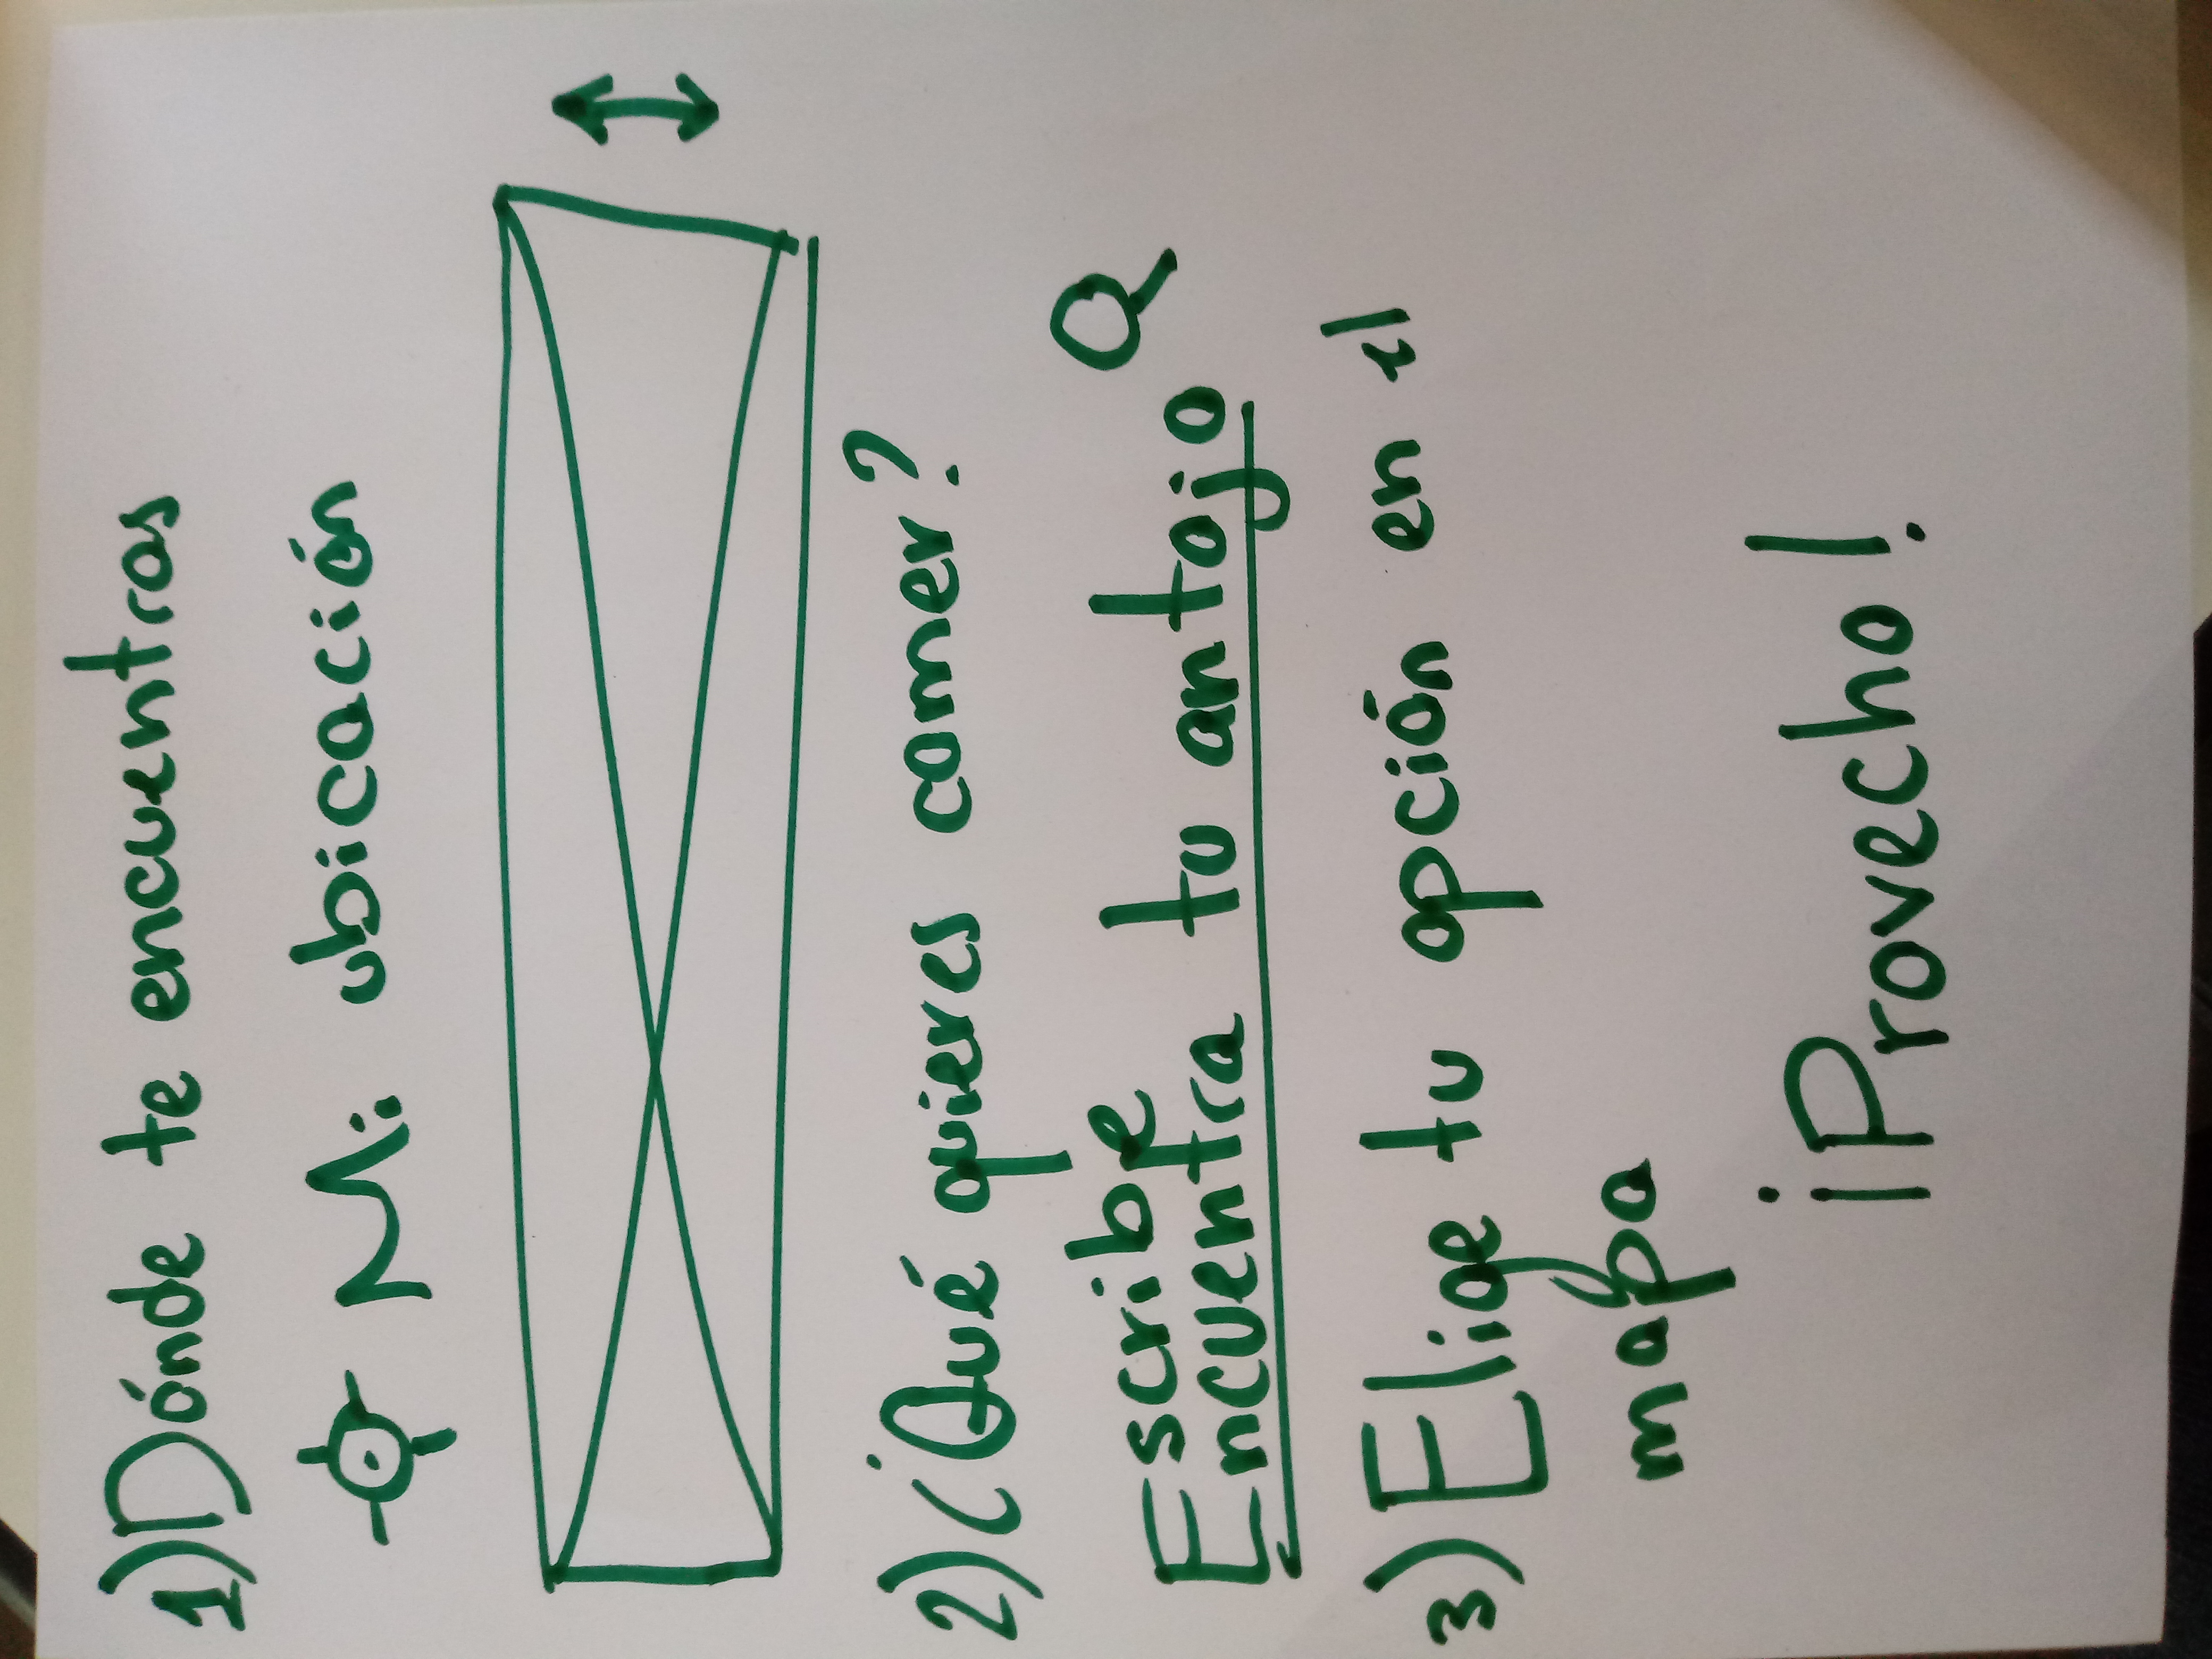 1) Dónde te encuentras
Mi ubicación
2) ¿Qué quieres comer?
Escribe
Encuentra tu antojo
3) Elige tu opción en el
mapa
¡Provecho!